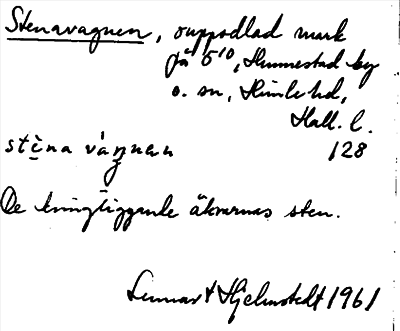 Stenavagnen, ouppodlad mark
på 5¹⁰, Hunnestad by
o. sn, Himle hd,
Hall. l.
128
stè̱na váŋnan
De kringliggande åkrarnas sten.
Lennart Hjelmstedt 1961